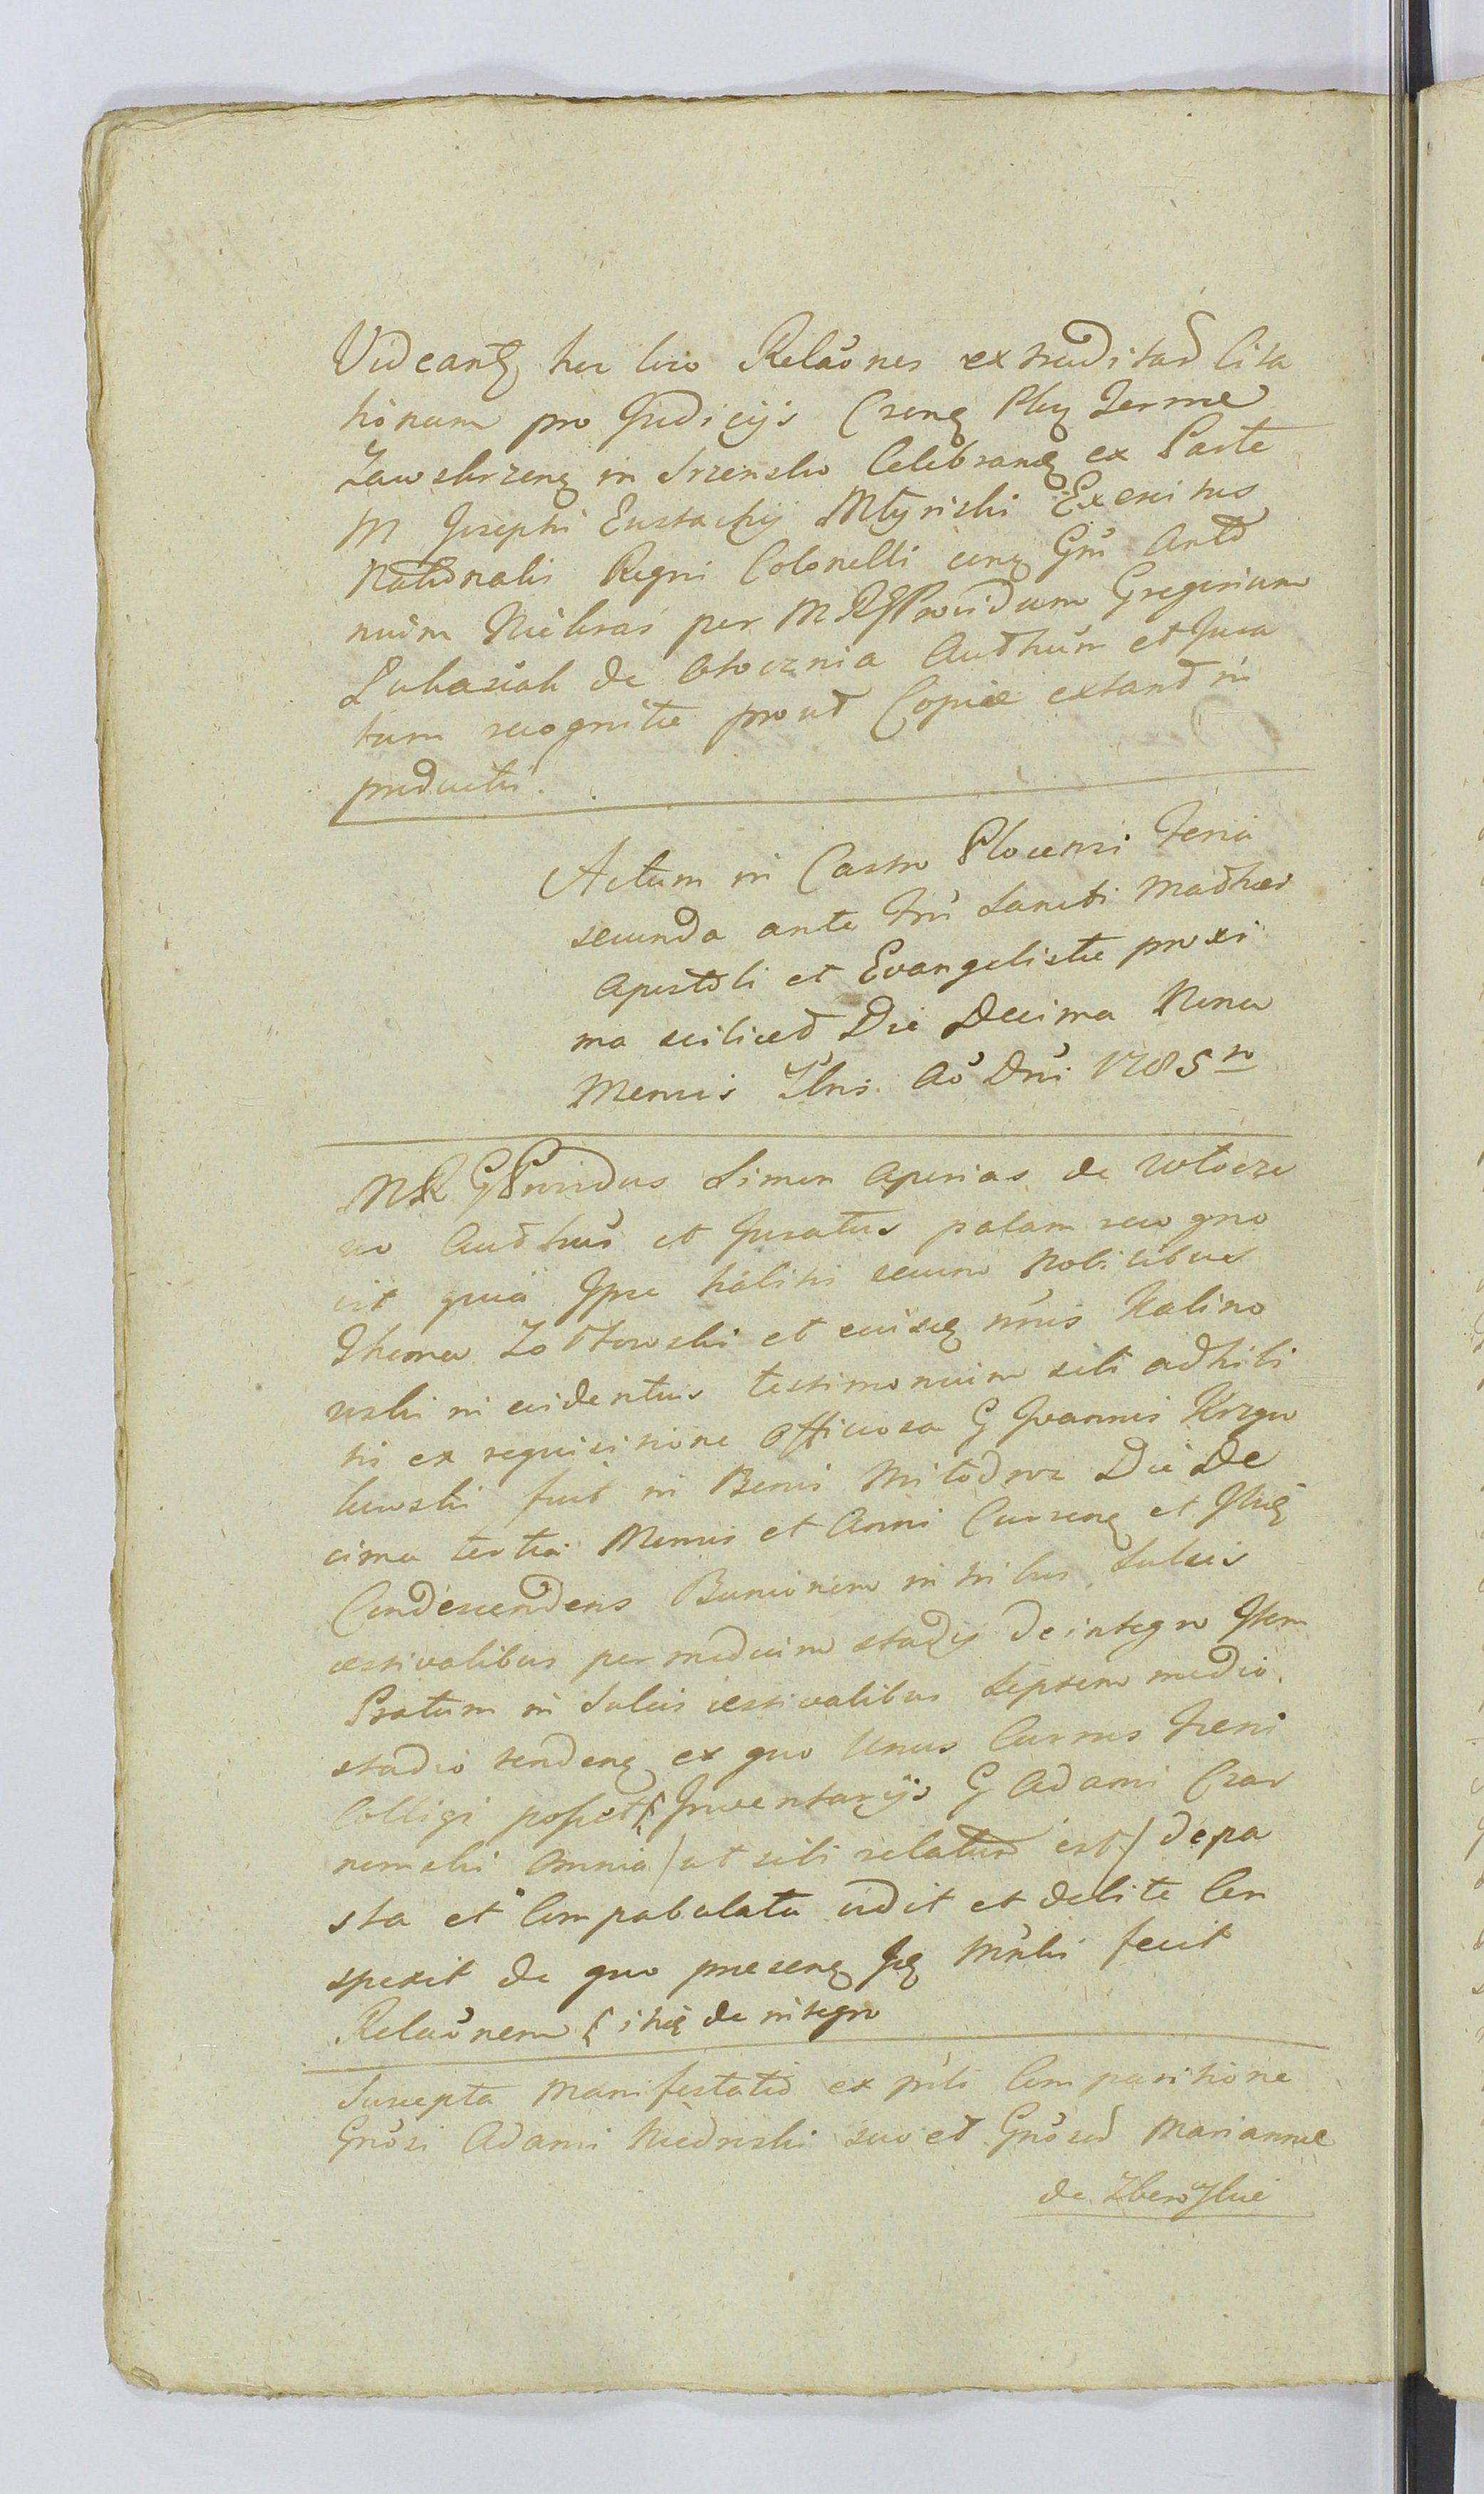 Videantʒ hic loco Relaõnes extraditarũ Cita
tionum pro Judicijs Crsenʒ Plcʒ Termę
Zawskrzenʒ in Srzensko Celebranʒ ex Parte
M Josephi Eustachij Młynski Exercitus
Nationalis Regni Colonelli conʒ Gnũ Anto
nium Niebras per MRG Providum Gregorium
Lubasiak de Otocznia Authũm et Jura
tum recognitæ prout Copiæ extant in
productis.
Actum in Castro Plocensi Feria
secunda ante Ftũ Sancti Mathæi
Apostoli et Evangelistæ proxi
ma scilicet Die Decima Nona
Mensis 7bris Aõ Dni 1785to
MRG Providus Simon Aperias de
Authus et Juratus palam recogno
vit quia Ipse habitis secum Nobilibus
Thoma Zottowski et Kalino
wski in evidentius testimonium sibi adhibi
tis ex requisitione Officiosa G Joannis
fuit in Bonis Die De
cima tertia Mensis et Anni Currenʒ et Ibiʒ
Condescendens in tribus Sulcis
æstivalibus per medium stadij de integro Item
Pratum in Sulcis æstivalibus Septem medio
stadio tendenʒ ex quo Unus Currus Fæni
Colligi posset Inventarijs G Adami Czar
nomski Omnia /ut sibi relatum est/ depa
sta et Compabulata vidit et debite Con
spexit de quo præsenʒ fecit
Relaõnem de integro
Suscepta Manifestatio ex Comparitione
Gnõsi Adami Niedrski suo et Gnõsæ Mariannæ
de